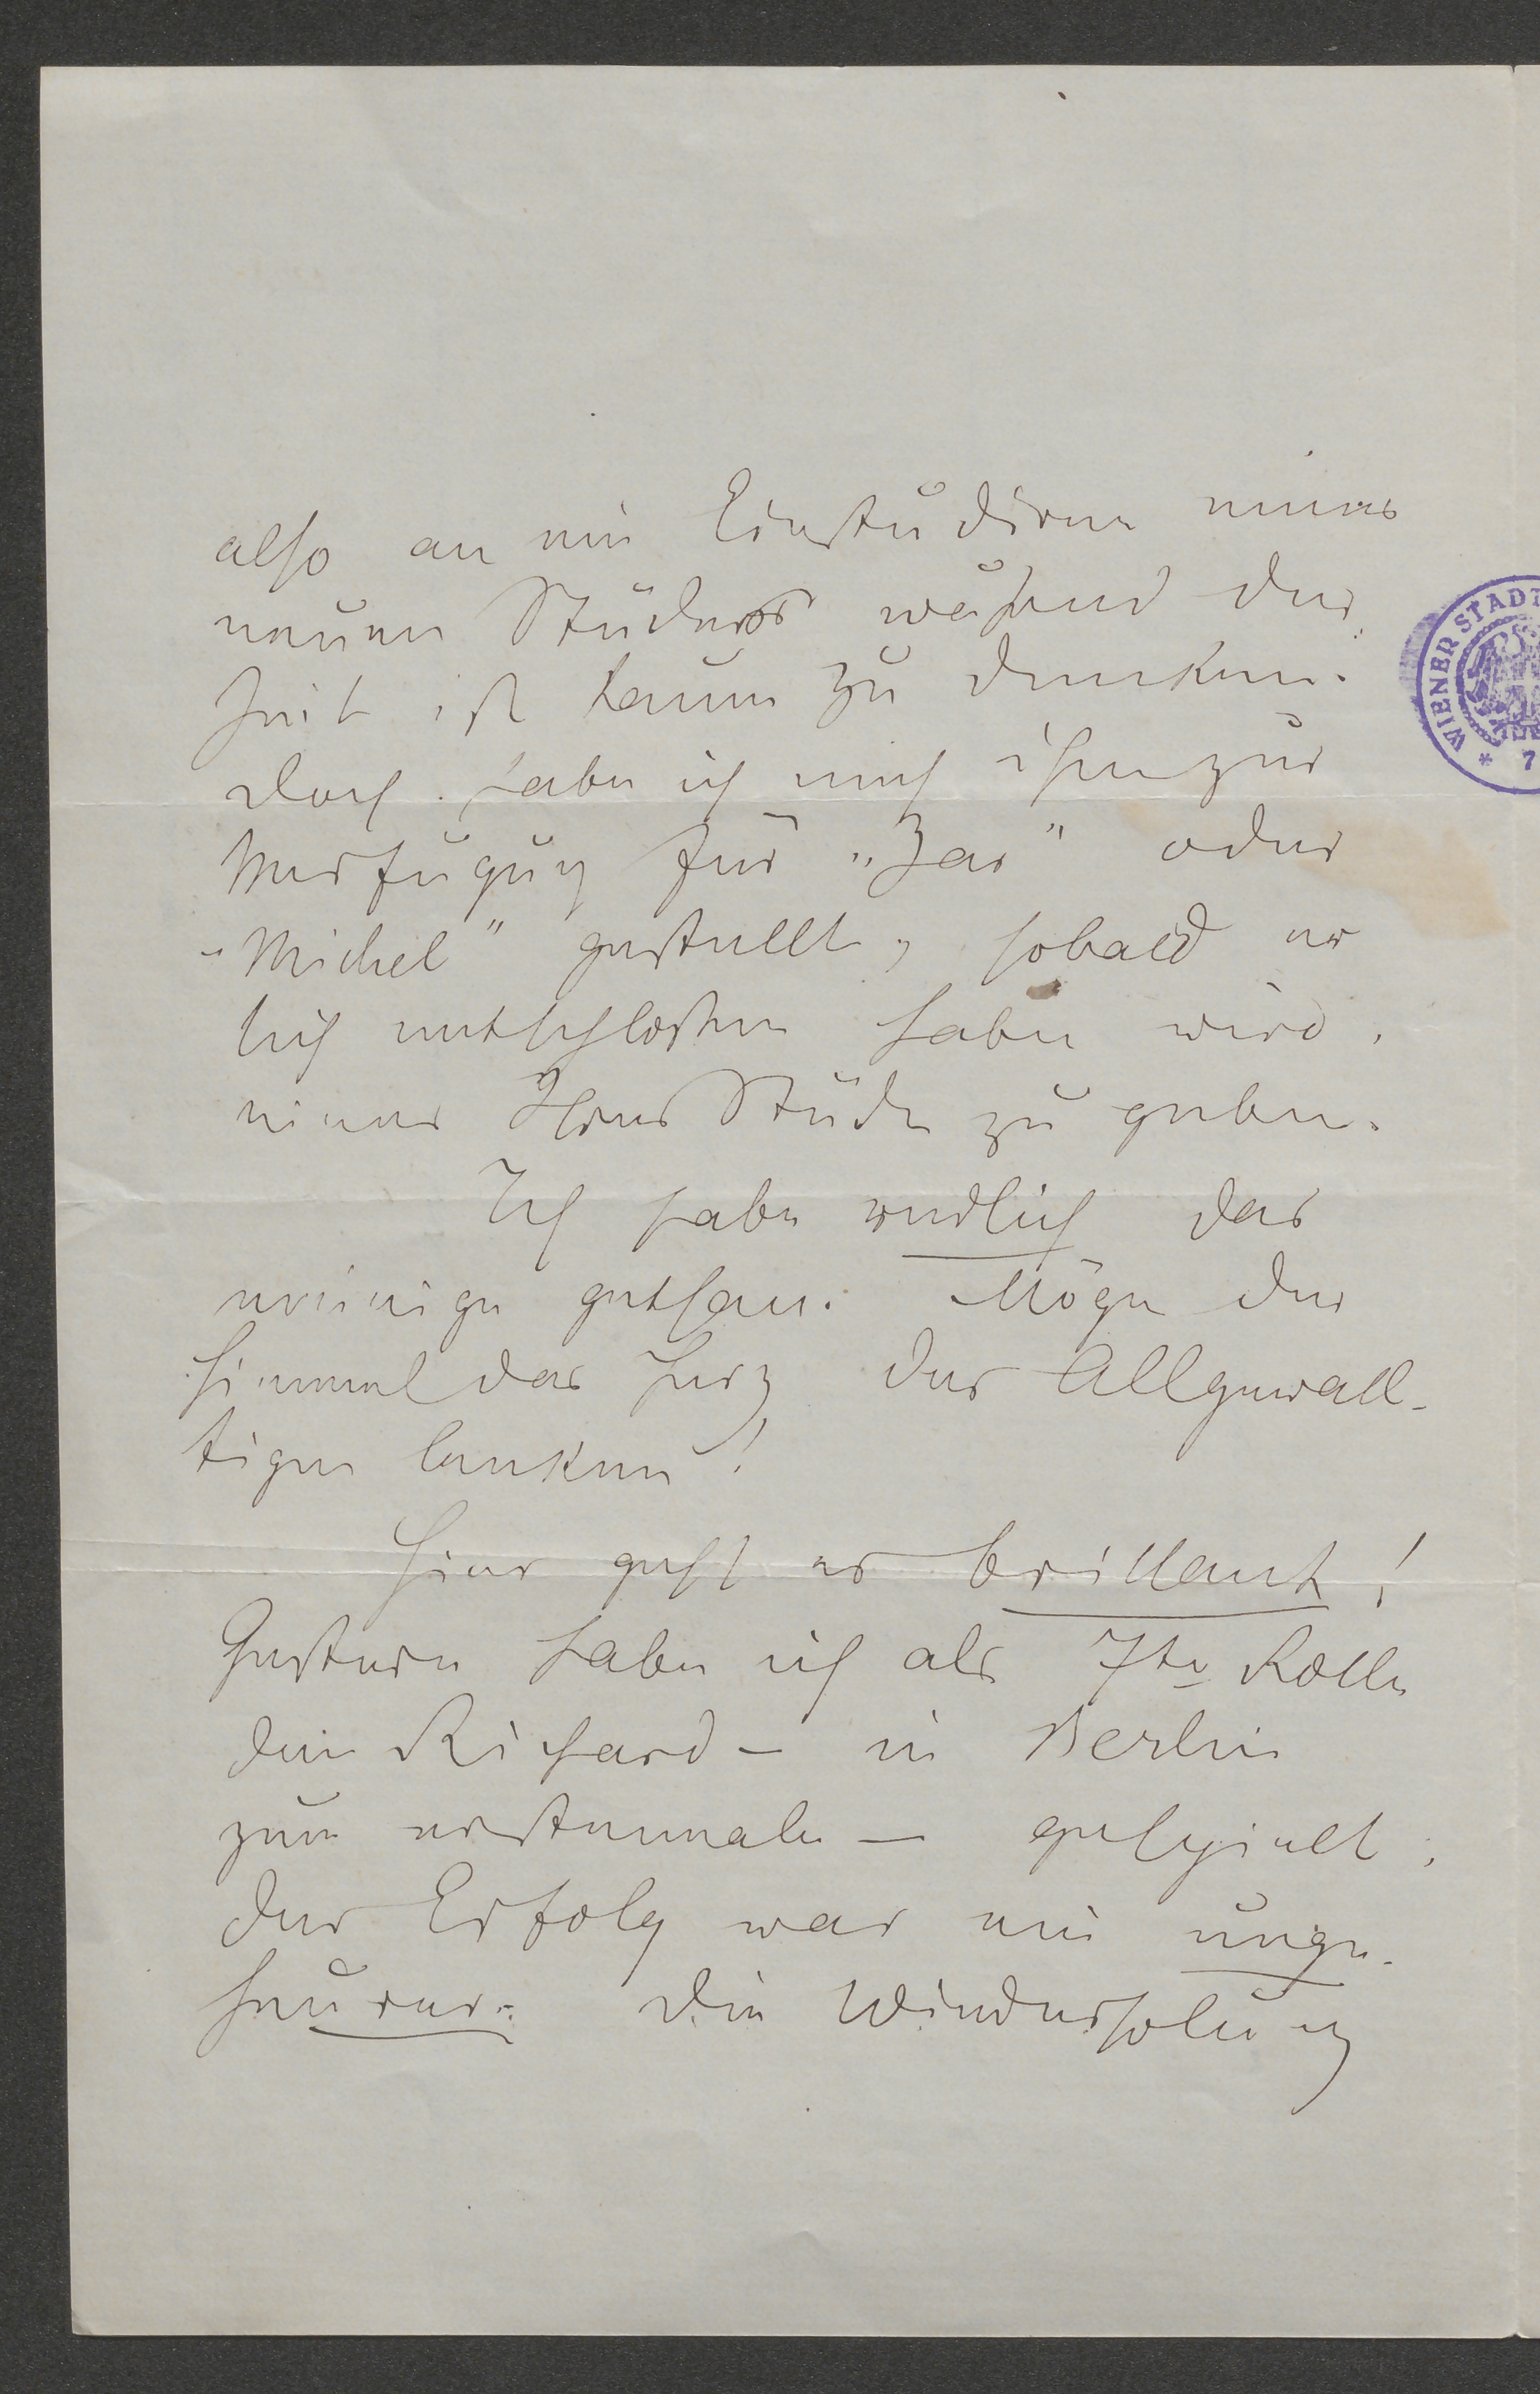 also an ein Einstudiren eines
neuen Stückes während der
Zeit ist kaum zu denken.
Doch habe ich mich ihm zur
Verfügung für „Zar" oder
„Michel" gestellt, sobald er
sich entschlossen haben wird,
eines Ihrer Stücke zu geben.
Ich habe redlich das
meinige gethan. Möge der
Himmel das Herz des Allgewal-
tigen lenken!
Hier geht es brillant!
Gestern habe ich als 7te Rolle
den Richard – in Berlin
zum erstenmale – gespielt;
der Erfolg war ein unge-
heurer. Die Wiederholung
WIENER STADT
* 7